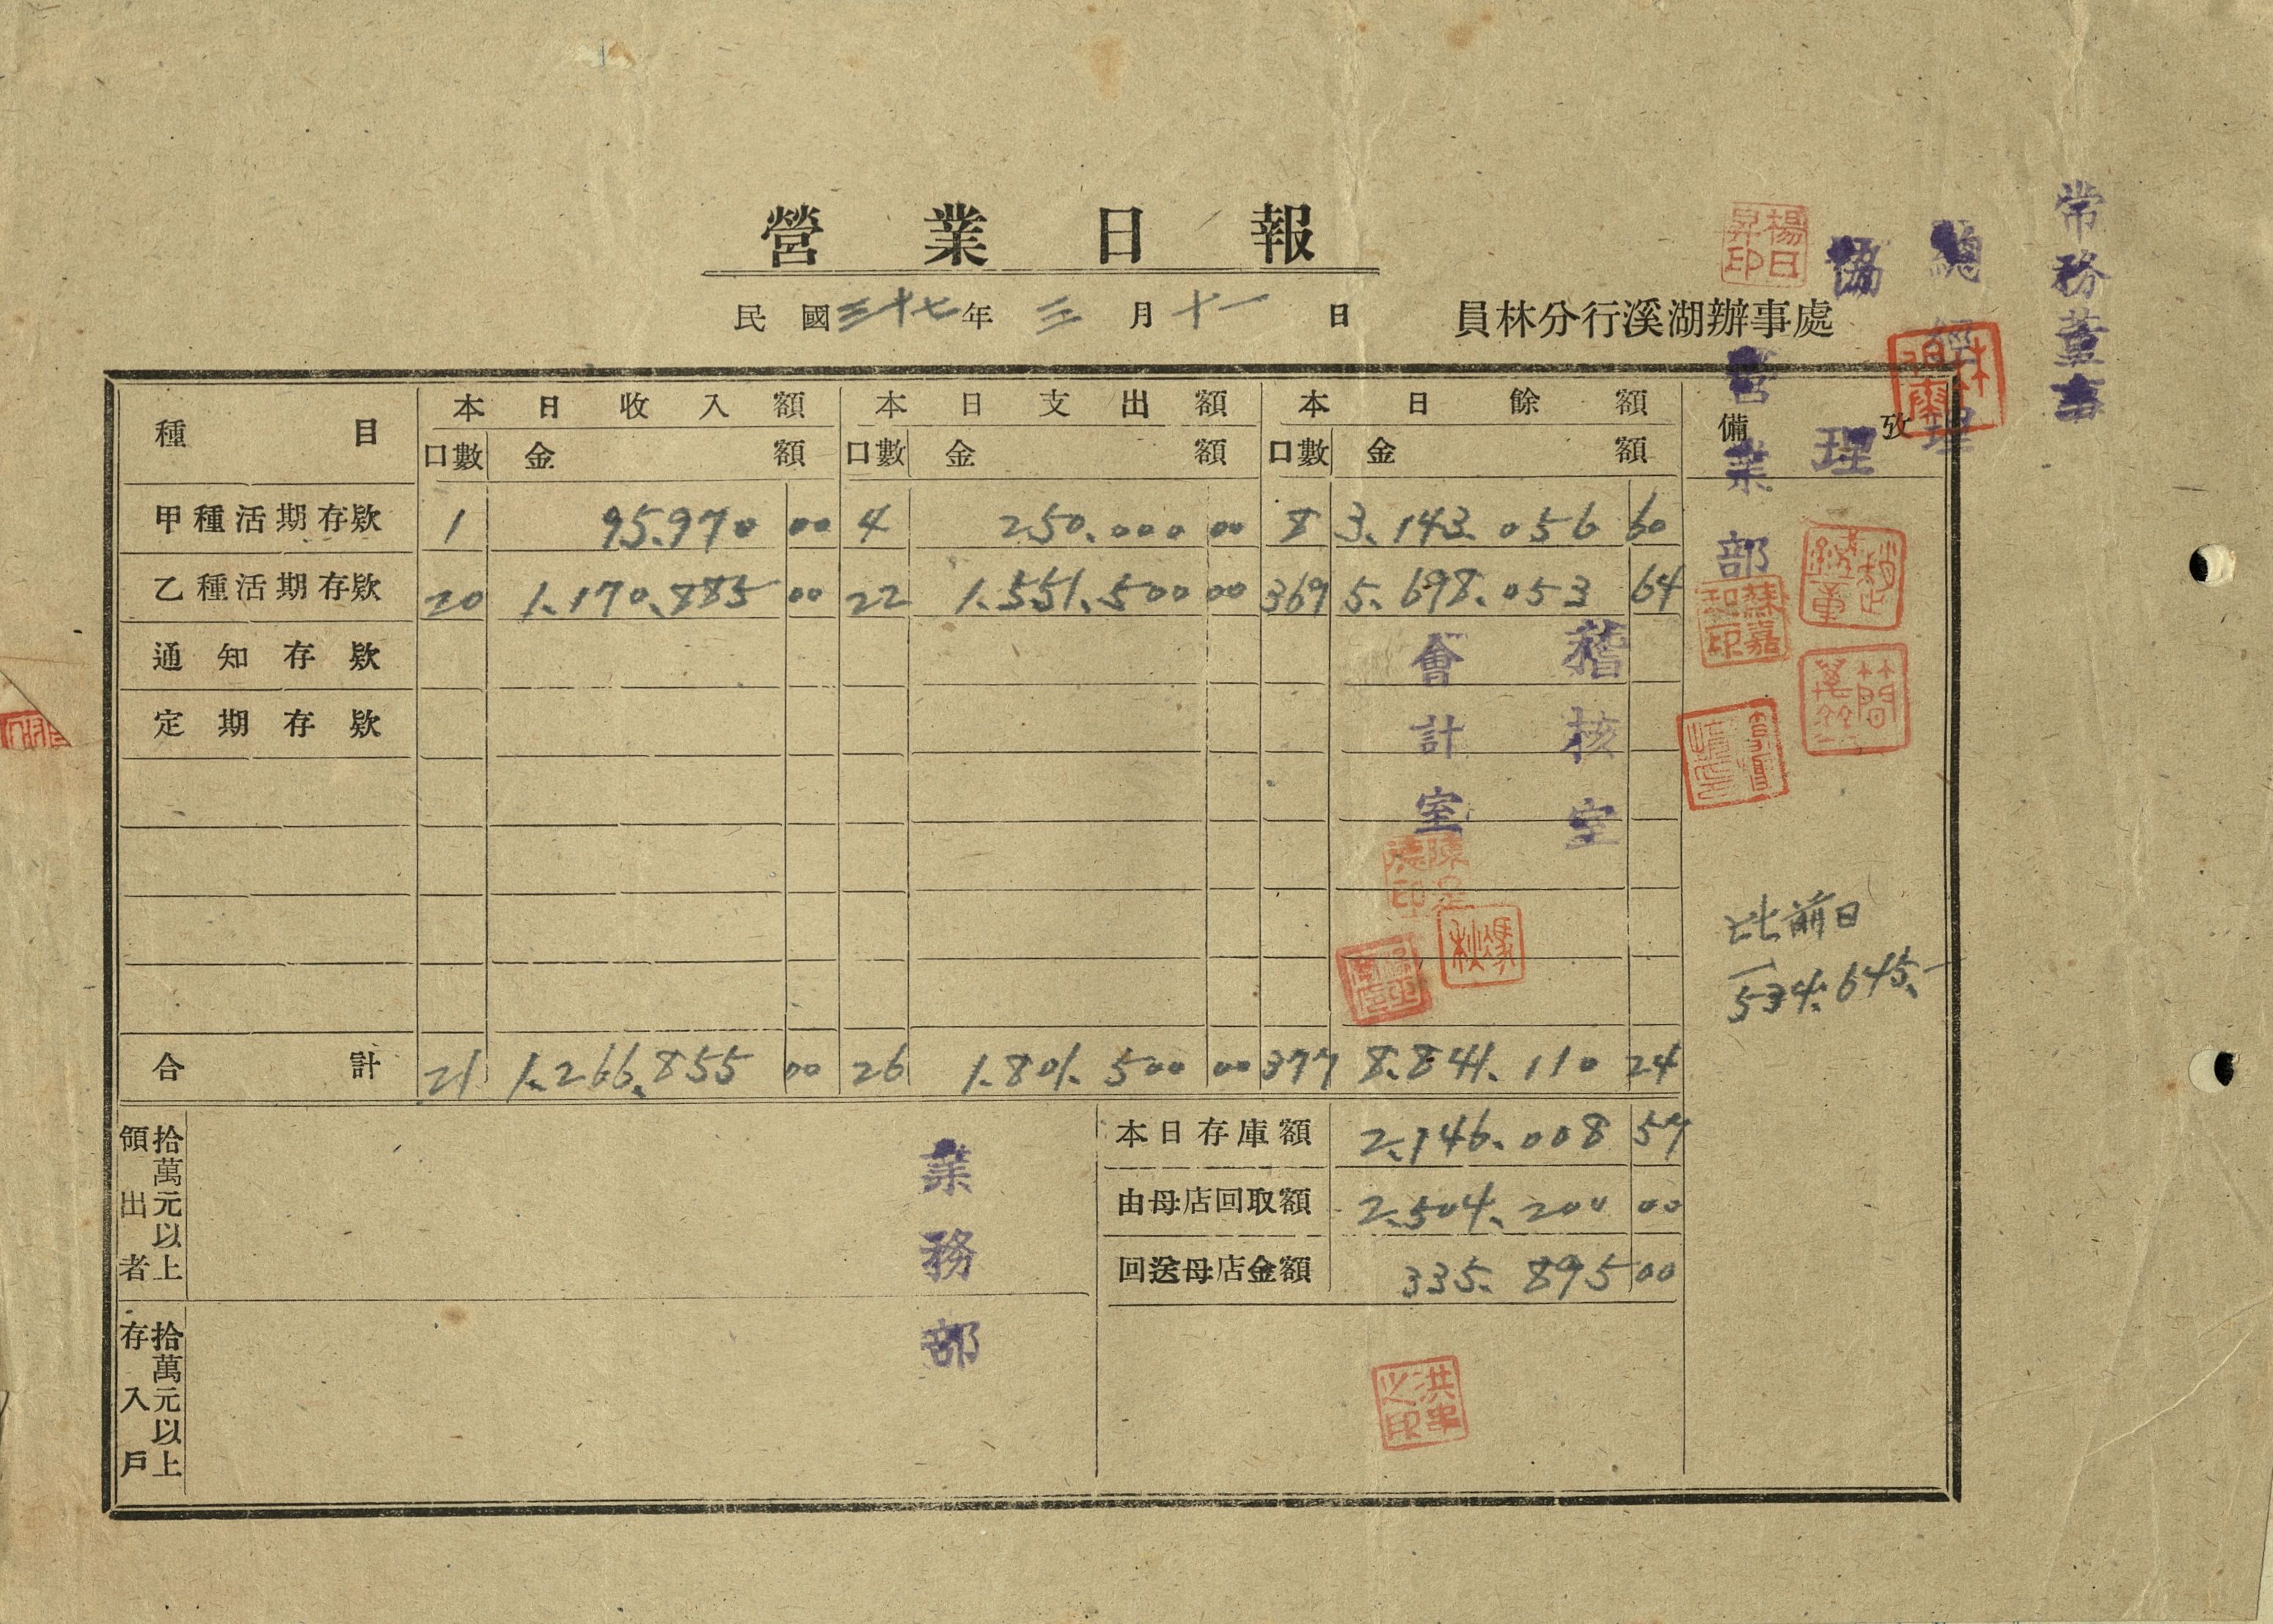 營業日報
民國三十七年三月十一日
員林分行溪湖辦事處
常務董事
總經理
協理
營業部
楊日昇印
種目 本日收入額 本日支出額 本日餘額 備攷
口數 金額 口數 金額 口數 金額
甲種活期存欵 1 95.970 00 4 250.000 00 8 3.143.056 60
乙種活期存欵 20 1.170.885 00 22 1.551.500 00 369 5.698.053 64
通知存欵
定期存欵
稽核室
會計室
蘇嘉和印
比前日
一534.645.-
合計 21 1.266.855 00 26 1.801.500 00 377 8.841.110 24
拾萬元以上領出者
業務部
本日存庫額 2.146.008 57
由母店回取額 2.504.200 00
回送母店金額 335.895 00
拾萬元以上存入戶